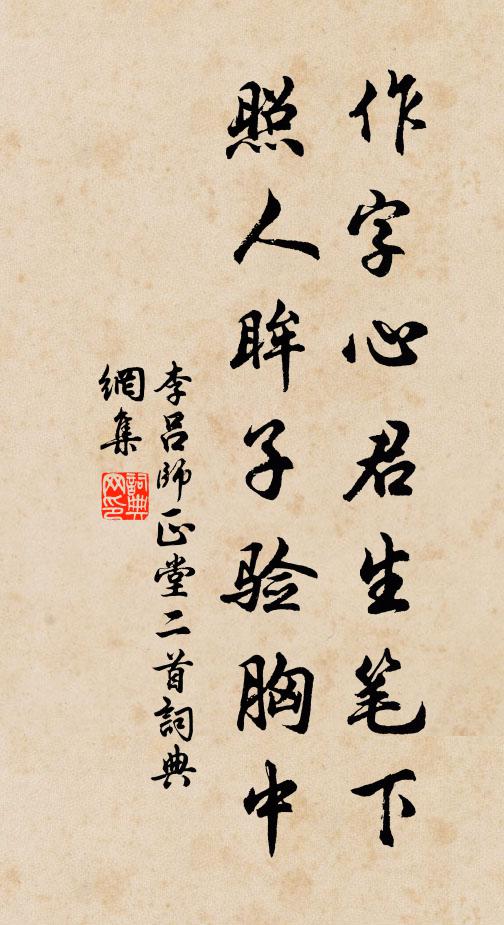 作字心君生笔下
照人眸子验胸中
李吕师正堂二首詞典
網集
詞典网印